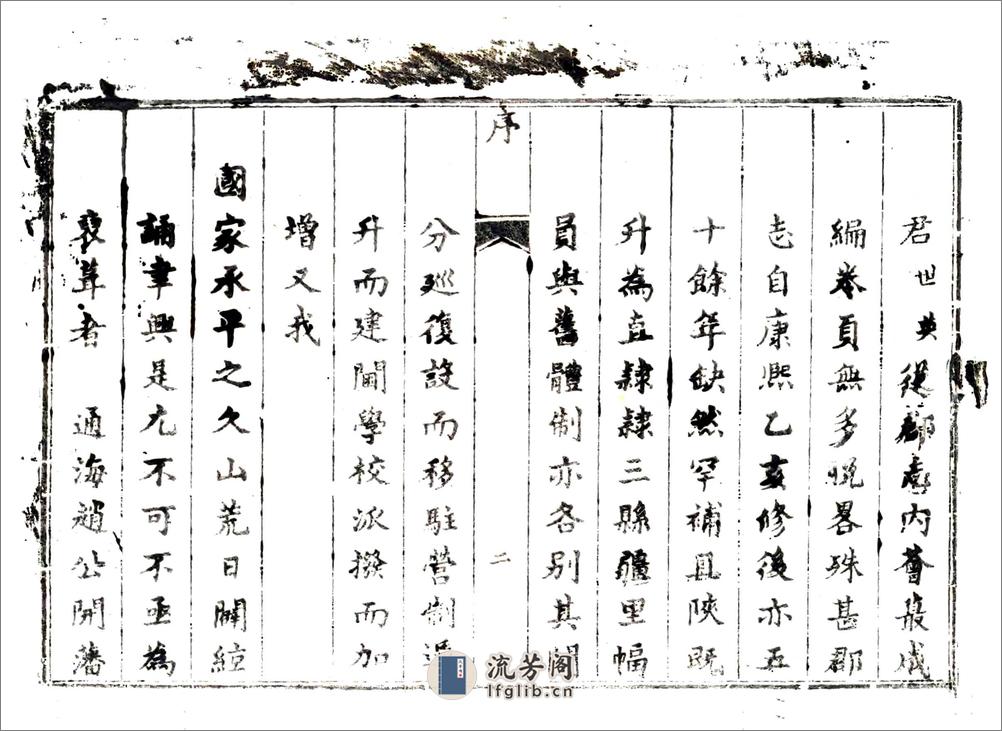 君世英從郡志內薈蕞成
編卷頁無多脱畧殊甚郡
志自康熙乙亥修後亦五
十餘年缺然罕補且陝既
升為直隸隸三縣疆里幅
員與舊體制亦各別其間
序
二
分廵復設而移駐營制遞
升而建閫學校派撥而加
增又我
國家承平之久山荒日闢絃
誦聿興是尤不可不亟為
裒葺者 通海趙公開藩
流芳阁
lfglib.cn